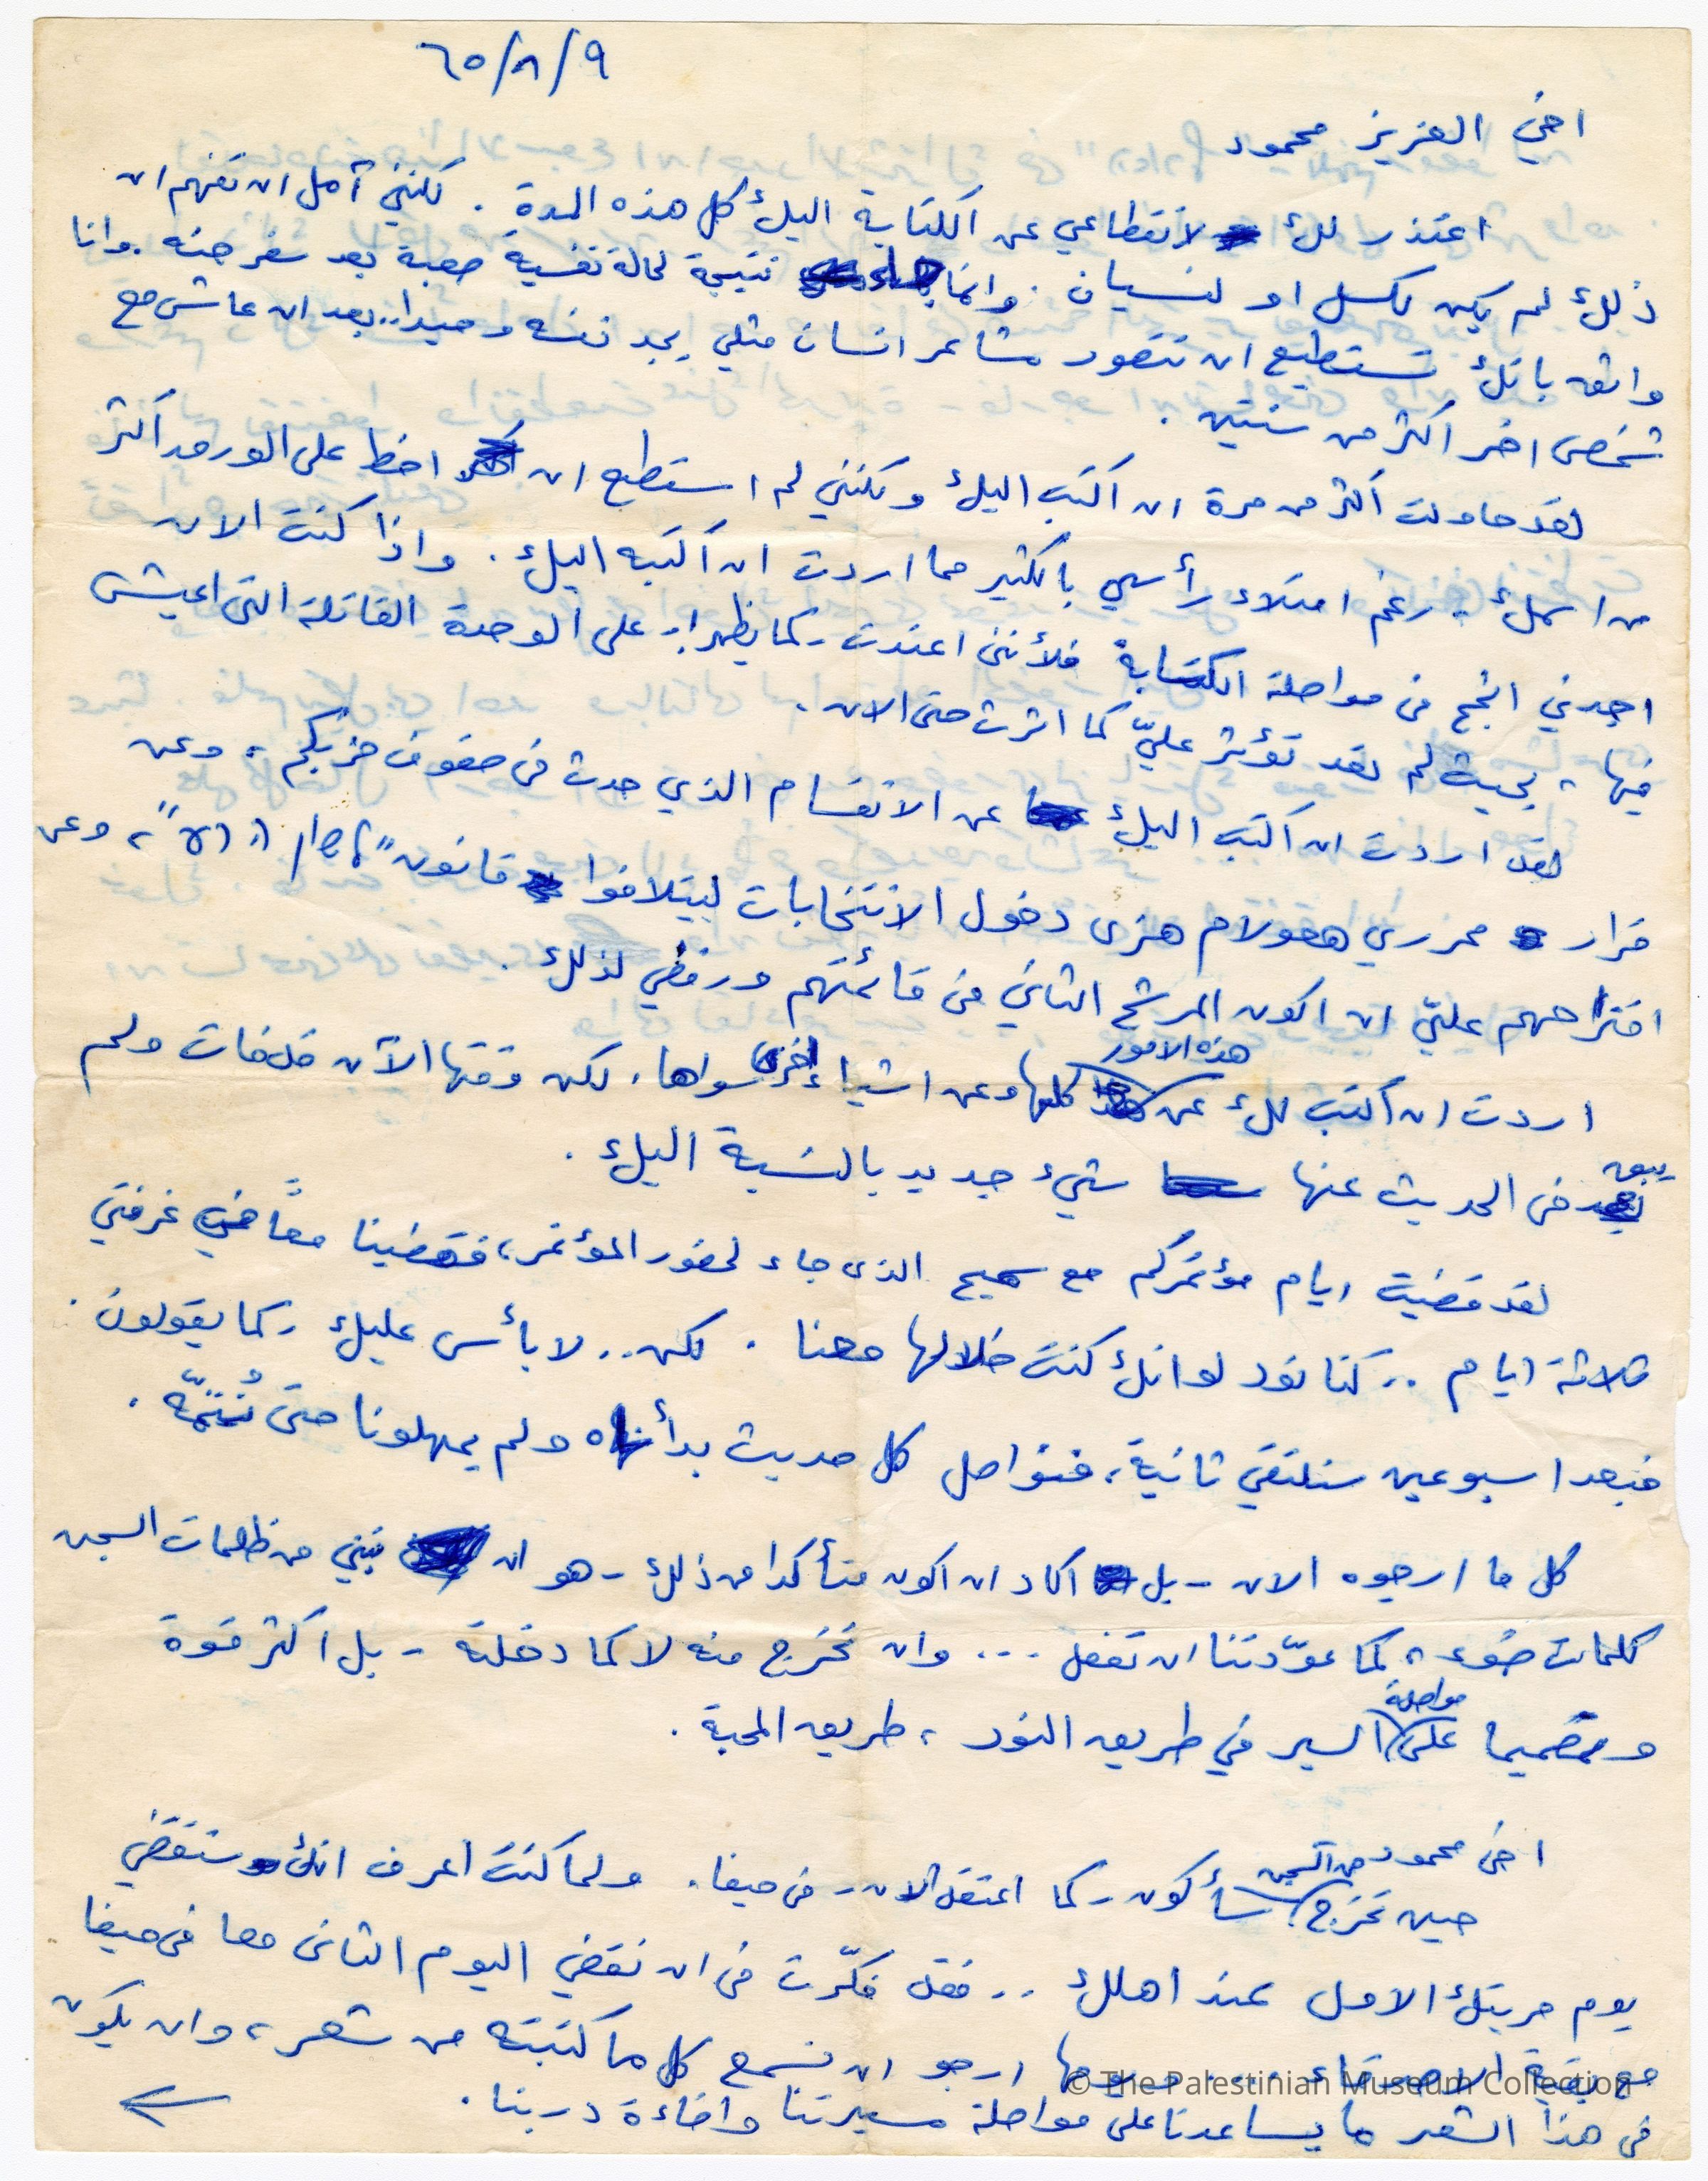 ٦٥/٨/٩
اخي العزيز محمود
اعتذر لك لانقطاعي عن الكتابة اليك كل هذه المدة . لكنني آمل ان تفهم ان
ذلك لم يكن لكسل او لنسيان . وانما نتيجة لحالة نفسية صعبة بعد سفر حنه . وانا
واثق بانك تستطيع ان تتصور مشاعر انسان مثلي يجد نفسه وحيدا.. بعد ان عاش مع
شخص اخر اكثر من سنتين .
لقد حاولت اكثر من مرة ان اكتب اليك ولكنني لم استطع ان اخط على الورق اكثر
من اسمك ، رغم امتلاء رأسي بالكثير مما اردت ان اكتبه اليك . واذا كنت الان
اجدني انجح في مواصلة الكتابة فلأنني اعتدت - كما يظهر - على الوحدة القاتلة التي اعيش
فيها ، بحيث لم تعد تؤثر عليّ كما اثرت حتى الان .
لقد اردت ان اكتب اليك عن الانقسام الذي حدث في صفوف حزبكم ، وعن
قرار محرري هعولام هزى دخول الانتخابات ليتلافوا قانون " לשון הרע " ، وعن
اقتراحهم عليّ ان اكون المرشح الثاني في قائمتهم ورفضي لذلك .
اردت ان اكتب لك عن هذه الامور كلها وعن اشياء اخرى سواها . لكن وقتها الآن قد فات ولم
يبق في الحديث عنها شيء جديد بالنسبة اليك .
لقد قضيت ايام مؤتمركم مع سميح الذي جاء لحضور المؤتمر ، فقضينا معاً في غرفتي
ثلاثة ايام .. كنا نود لو انك كنت خلالها معنا . لكن .. لا بأس عليك ، كما يقولون .
فبعد اسبوعين سنلتقي ثانية ، فنواصل كل حديث بدأناه ولم يمهلونا حتى نُتمّه .
كل ما ارجوه الان - بل اكاد ان اكون متأكدا من ذلك - هو ان من ظلمات السجن
كلمات ضوء ، كما عوّدتنا ان تفعل ... وان تخرج منه لا كما دخلته - بل اكثر قوة
وتصميما على مواصلة السير في طريق النور ، طريق المحبة .
اخي محمود
حين تخرج من السجن سأكون - كما اعتقد الان - في حيفا . ولما كنت اعرف انك ستقضي
يوم حريتك الاول عند اهلك .. فقد فكّرت في ان نقضي اليوم الثاني معا في حيفا
مع بقية الاصدقاء ... ارجو ان نسمع كل ما كتبته من شعر ، وان يكون
في هذا الشعر ما يساعدنا على مواصلة مسيرتنا واضاءة دربنا .
© The Palestinian Museum Collection